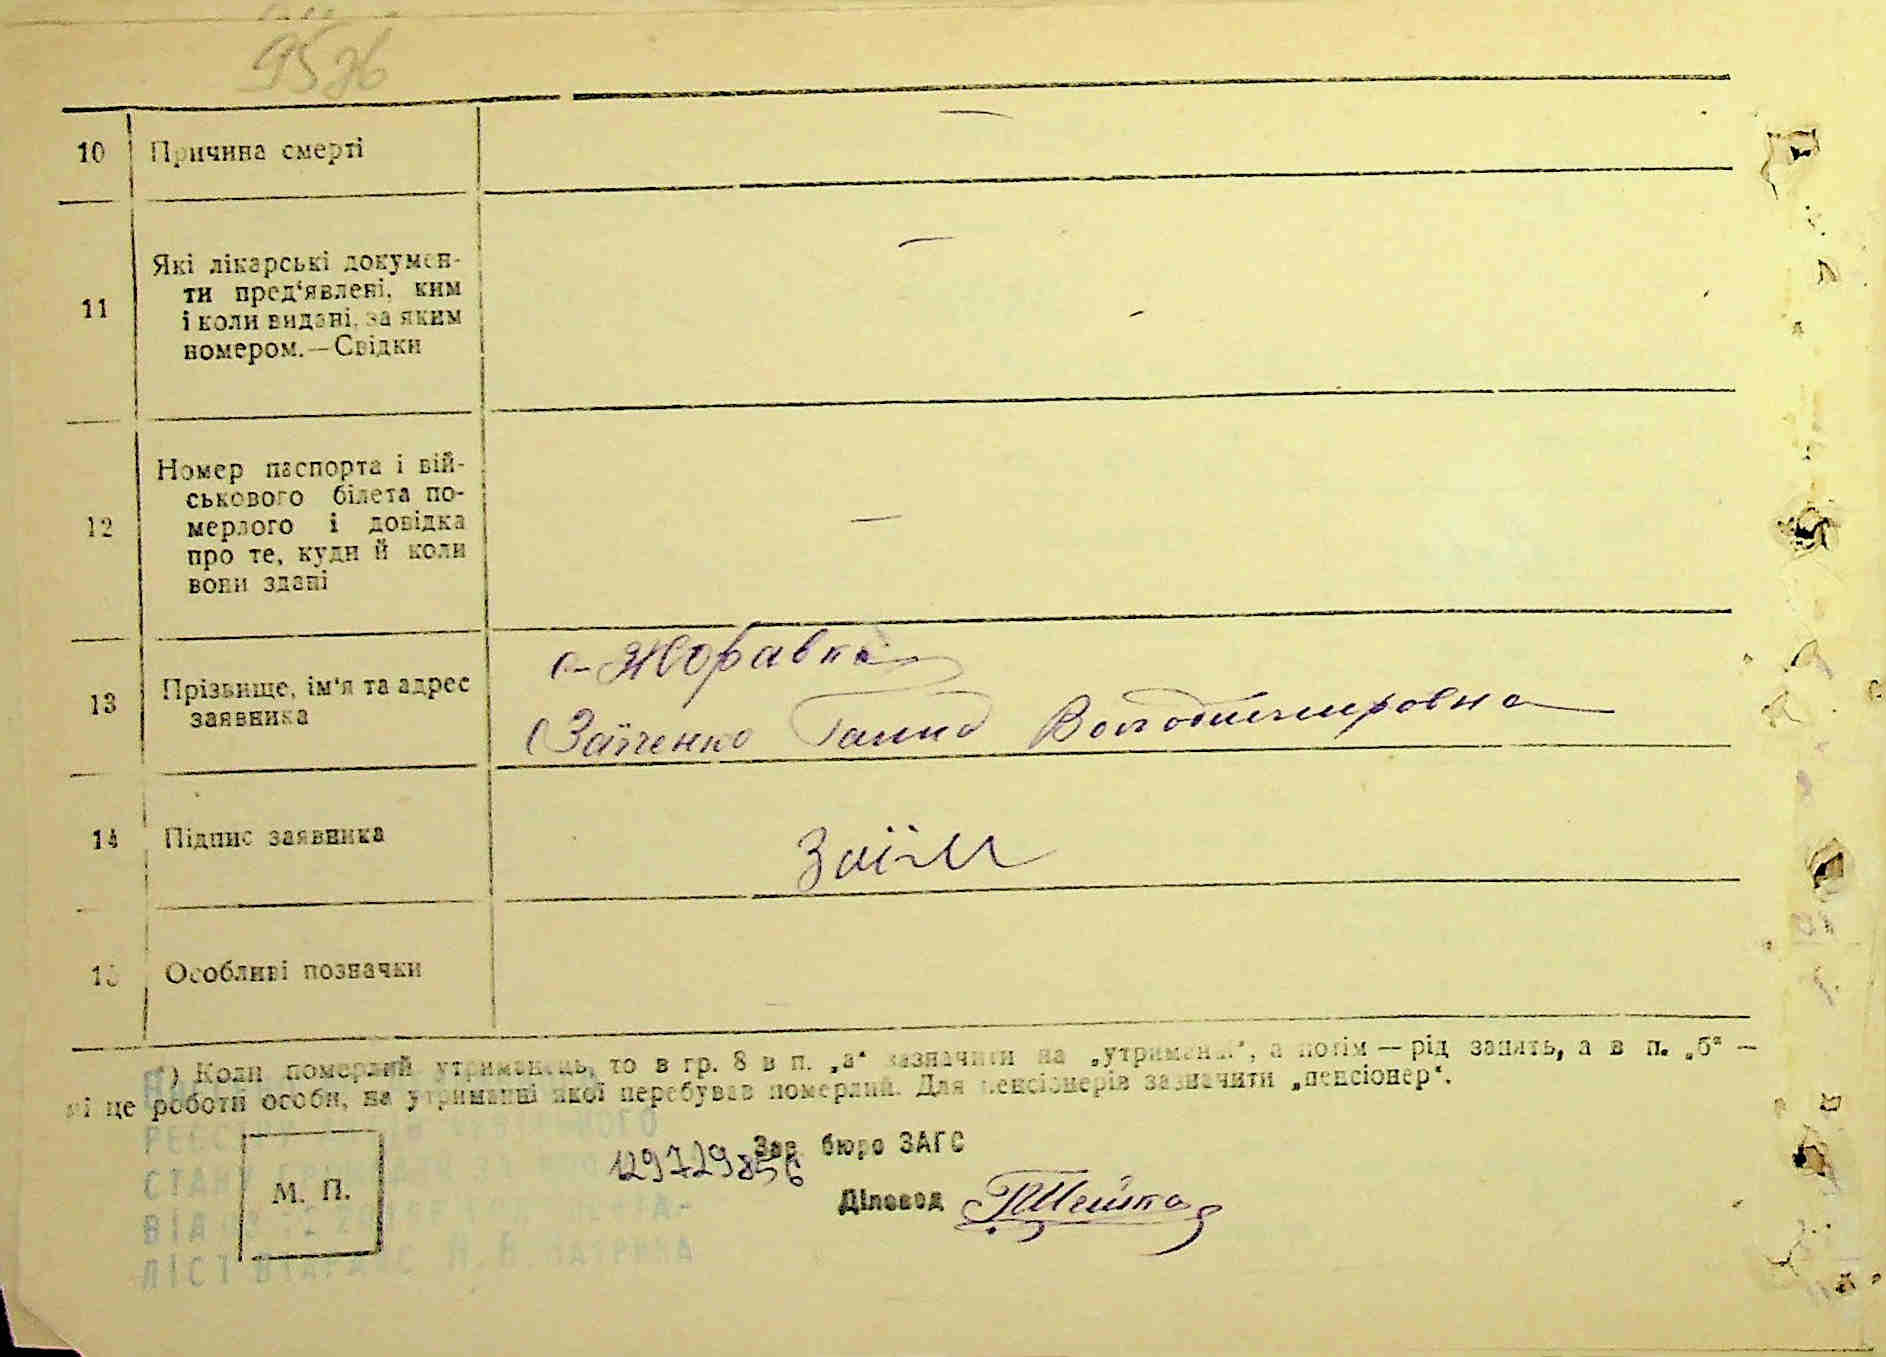 10 Причина смерті —
11 Які лікарські докумен-
ти пред‘явлені, ким
і коли видані, за яким
номером.—Свідки
—
12 Номер паспорта і вій-
ськового білета по-
мерлого і довідка
про те, куди й коли
вони здані
—
13 Прізвище, ім‘я та адрес
заявника
с. Журавка
Заїченко Ганна Володимировна
14 Підпис заявника
15 Особливі позначки
*) Коли померлий утриманець, то в гр. 8 в п. „а“ зазначити на „утриманні“, а потім — рід занять, а в п. „б“ —
які це роботи особи, на утриманні якої перебував померлий. Для пенсіонерів зазначити „пенсіонер“.
М. П.
Зав. бюро ЗАГС
129729856
Діловод